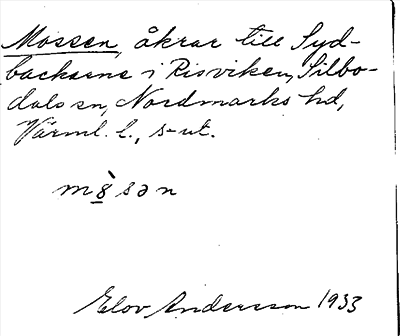 Mossen, åkrar till Syd-
backarne i Risviken, Silbo-
dals sn, Nordmarks hd,
Värml. l., s-ut.
m8̀sən
Elov Andersson 1933